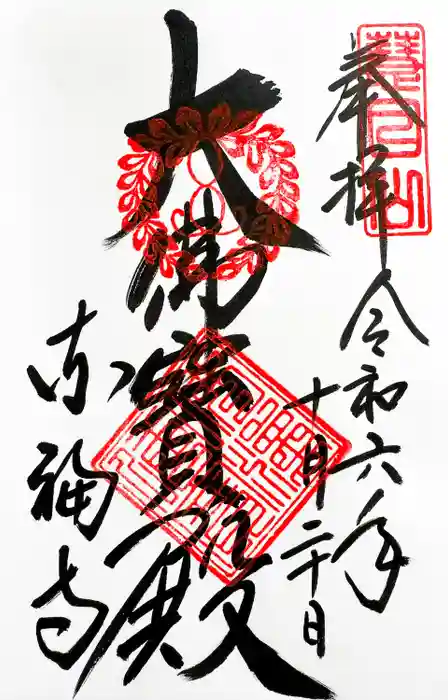 慧日山
奉拝 令和六年
十月二十日
大佛寶殿
東福寺